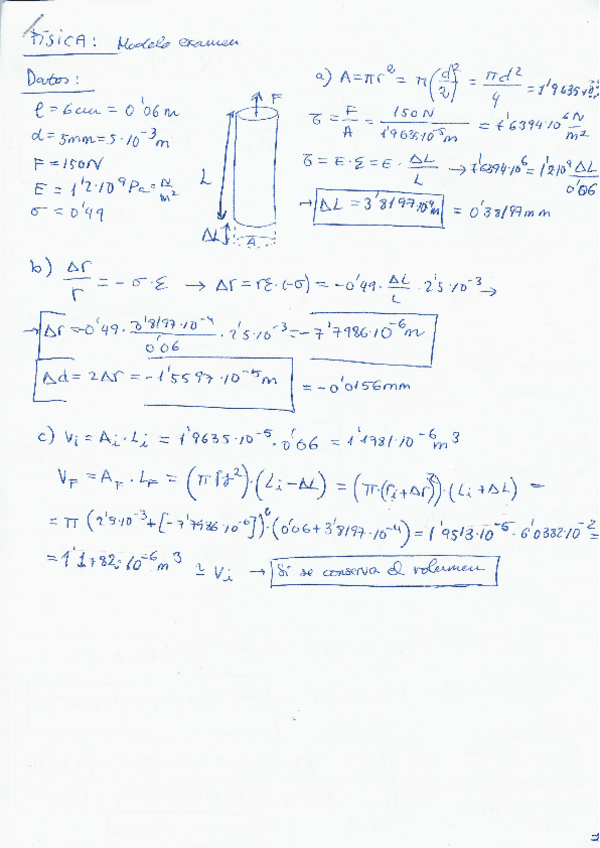 FÍSICA: Modelo examen
Datos:
l = 6cm = 0'06m
d = 5mm = 5·10⁻³m
F = 150N
E = 1'2·10⁹ Pa = N/m²
σ = 0'49
F
L
ΔL
A
a) A = πr² = π(d/2)² = πd²/4 = 1'9635·10⁻⁵
τ = F/A = 150N / 1'9635·10⁻⁵m = 7'6394·10⁶ N/m²
τ = E·ε = E · ΔL/L → 7'6394·10⁶ = 1'2·10⁹ ΔL/0'06
→ ΔL = 3'8197·10⁻⁴m = 0'38197mm
b) Δr/r = -σ·ε → Δr = rε·(-σ) = -0'49· ΔL/L ·2'5·10⁻³ →
→ Δr = -0'49· 3'8197·10⁻⁴/0'06 · 2'5·10⁻³ = -7'7986·10⁻⁶m
Δd = 2Δr = -1'5597·10⁻⁵m = -0'0156mm
c) Vi = Ai·Li = 1'9635·10⁻⁵·0'06 = 1'1781·10⁻⁶m³
VF = AF·LF = (πrf²)·(Li-ΔL) = (π·(ri+Δr)²)·(Li+ΔL) =
= π(2'5·10⁻³+[-7'7986·10⁻⁶])²·(0'06+3'8197·10⁻⁴) = 1'9513·10⁻⁵·6'0382·10⁻² =
= 1'1782·10⁻⁶m³ ≃ Vi → Si se conserva el volumen